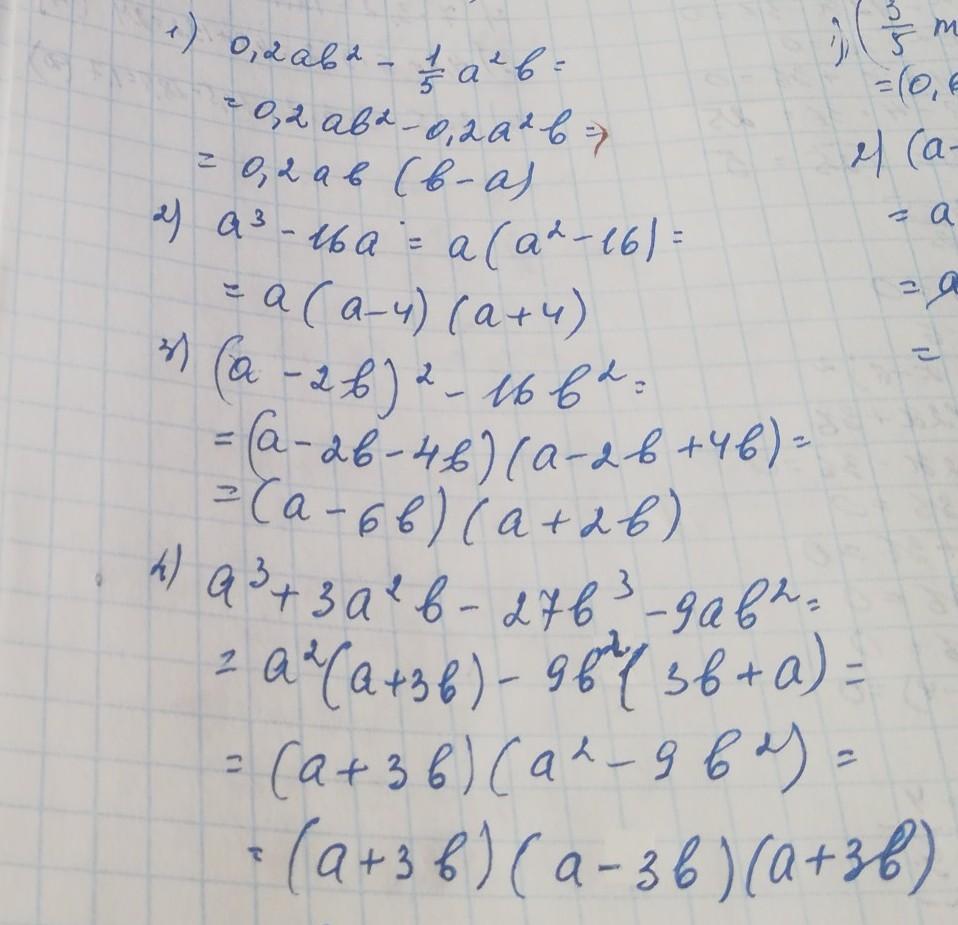 1) 0,2ab² - 1/5 a²b =
= 0,2ab² - 0,2a²b =
= 0,2ab (b - a)
2) a³ - 16a = a(a² - 16) =
= a(a - 4)(a + 4)
3) (a - 2b)² - 16b² =
= (a - 2b - 4b)(a - 2b + 4b) =
= (a - 6b)(a + 2b)
4) a³ + 3a²b - 27b³ - 9ab² =
= a²(a + 3b) - 9b²(3b + a) =
= (a + 3b)(a² - 9b²) =
= (a + 3b)(a - 3b)(a + 3b)
1) (3/5 m
= (0,6
2) (a -
= a
= a
=